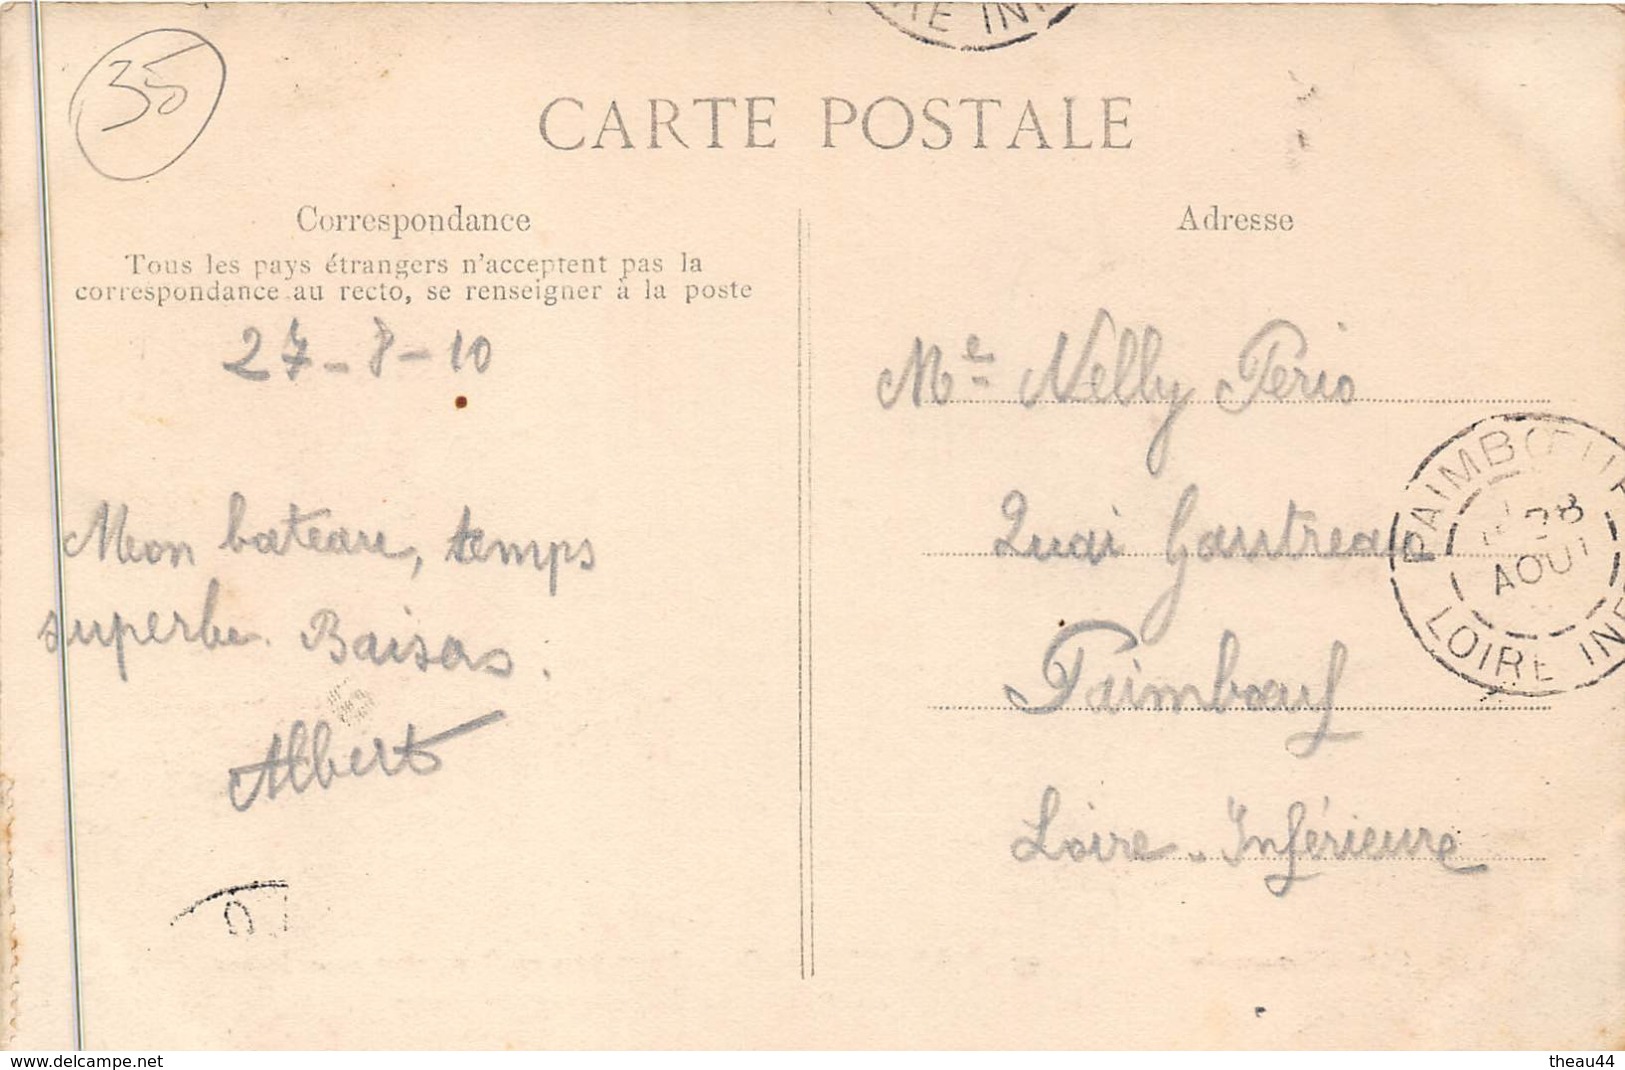 35
RE IN
CARTE POSTALE
Correspondance
Tous les pays étrangers n'acceptent pas la
correspondance au recto, se renseigner à la poste
27-8-10
Mon bateau, temps
superbe. Baisas.
Albert
Adresse
Me Nelly Perio
Quai Gautreau
Paimboeuf
Loire-Inférieure
PAIMBŒUF
28
AOUT
LOIRE INF
www.delcampe.net
theau44